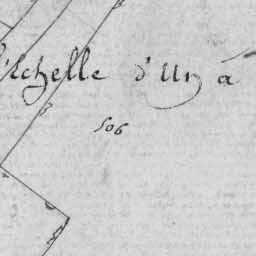 l'Echelle d'Un à
506